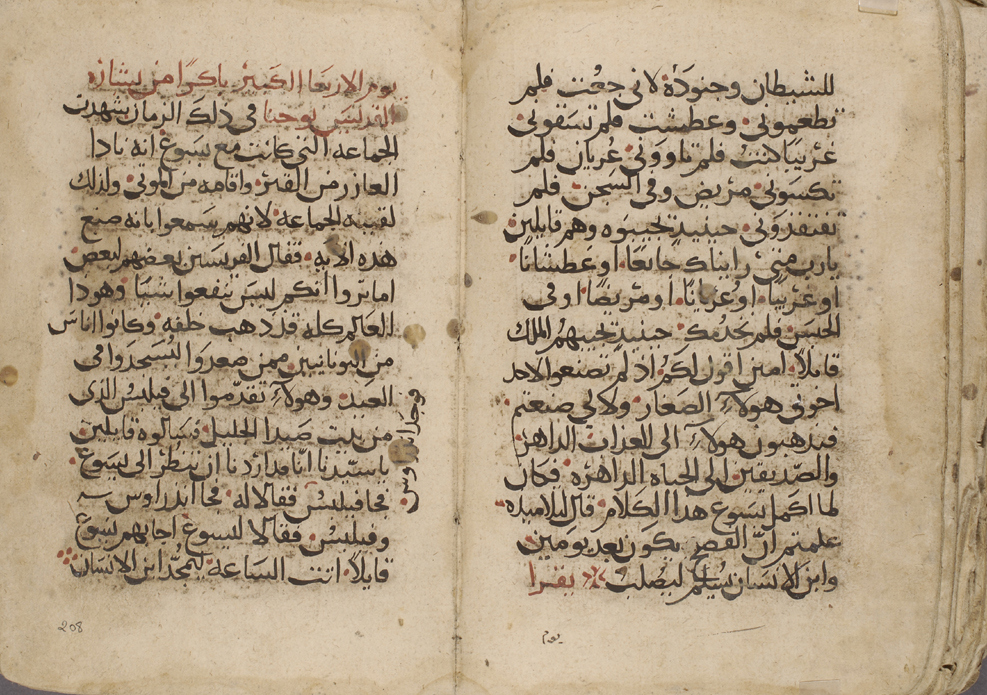 للشيطان وجنوده لاني جعت فلم
تطعموني وعطشت فلم تسقوني
غريبا كنت فلم تاووني عريان فلم
تكسوني مريض وفي السجن فلم
تفتقدوني حينيد يجيبوه وهم قايلين
يارب متي رايناك جايعا او عطشانا
او غريبا او عريانا او مريضا او في
الحبس فلم نخدمك حينيد يجيبهم الملك
قايلا امين اقول لكم اد لم تصنعوا لاحد
اخوتي هولاء الصغار ولا لي صنعتم
فيدهبون هولاء الي العداب الداهر
والصديقين الي الحياه الداهره فكان
لما اكمل يسوع هدا الكلام قال لتلاميده
علمتم ان الفصح يكون بعد يومين
وابن الانسان يسلم ليصلب يقرا
يوم
يوم الاربعا الكبير باكرا من بشاره
القديس يوحنا في دلك الزمان شهدت
الجماعه التي كانت مع يسوع انه نادا
العازر من القبر واقامه من الموتي ولدلك
لقيته الجماعه لانهم سمعوا بانه صنع
هده الايه فقال الفريسين بعضهم لبعض
اما تروا انكم ليس تنفعوا شيا وهودا
العالم كله قد دهب خلفه وكانوا اناس
من اليونانيين ممن صعدوا ليسجدوا في
العيد وهولاء تقدموا الي فيلبس الدي
من بيت صيدا الجليل فسالوه قايلين
ياسيدنا انا مدا ردنا ان ننظر الي يسوع
فجا فيلبس فقال له فجا اندراوس
وفيلبس فقالا ليسوع اجابهم يسوع
قايلا اتت الساعه ليمجد ابن الانسان
لاندراوس
208